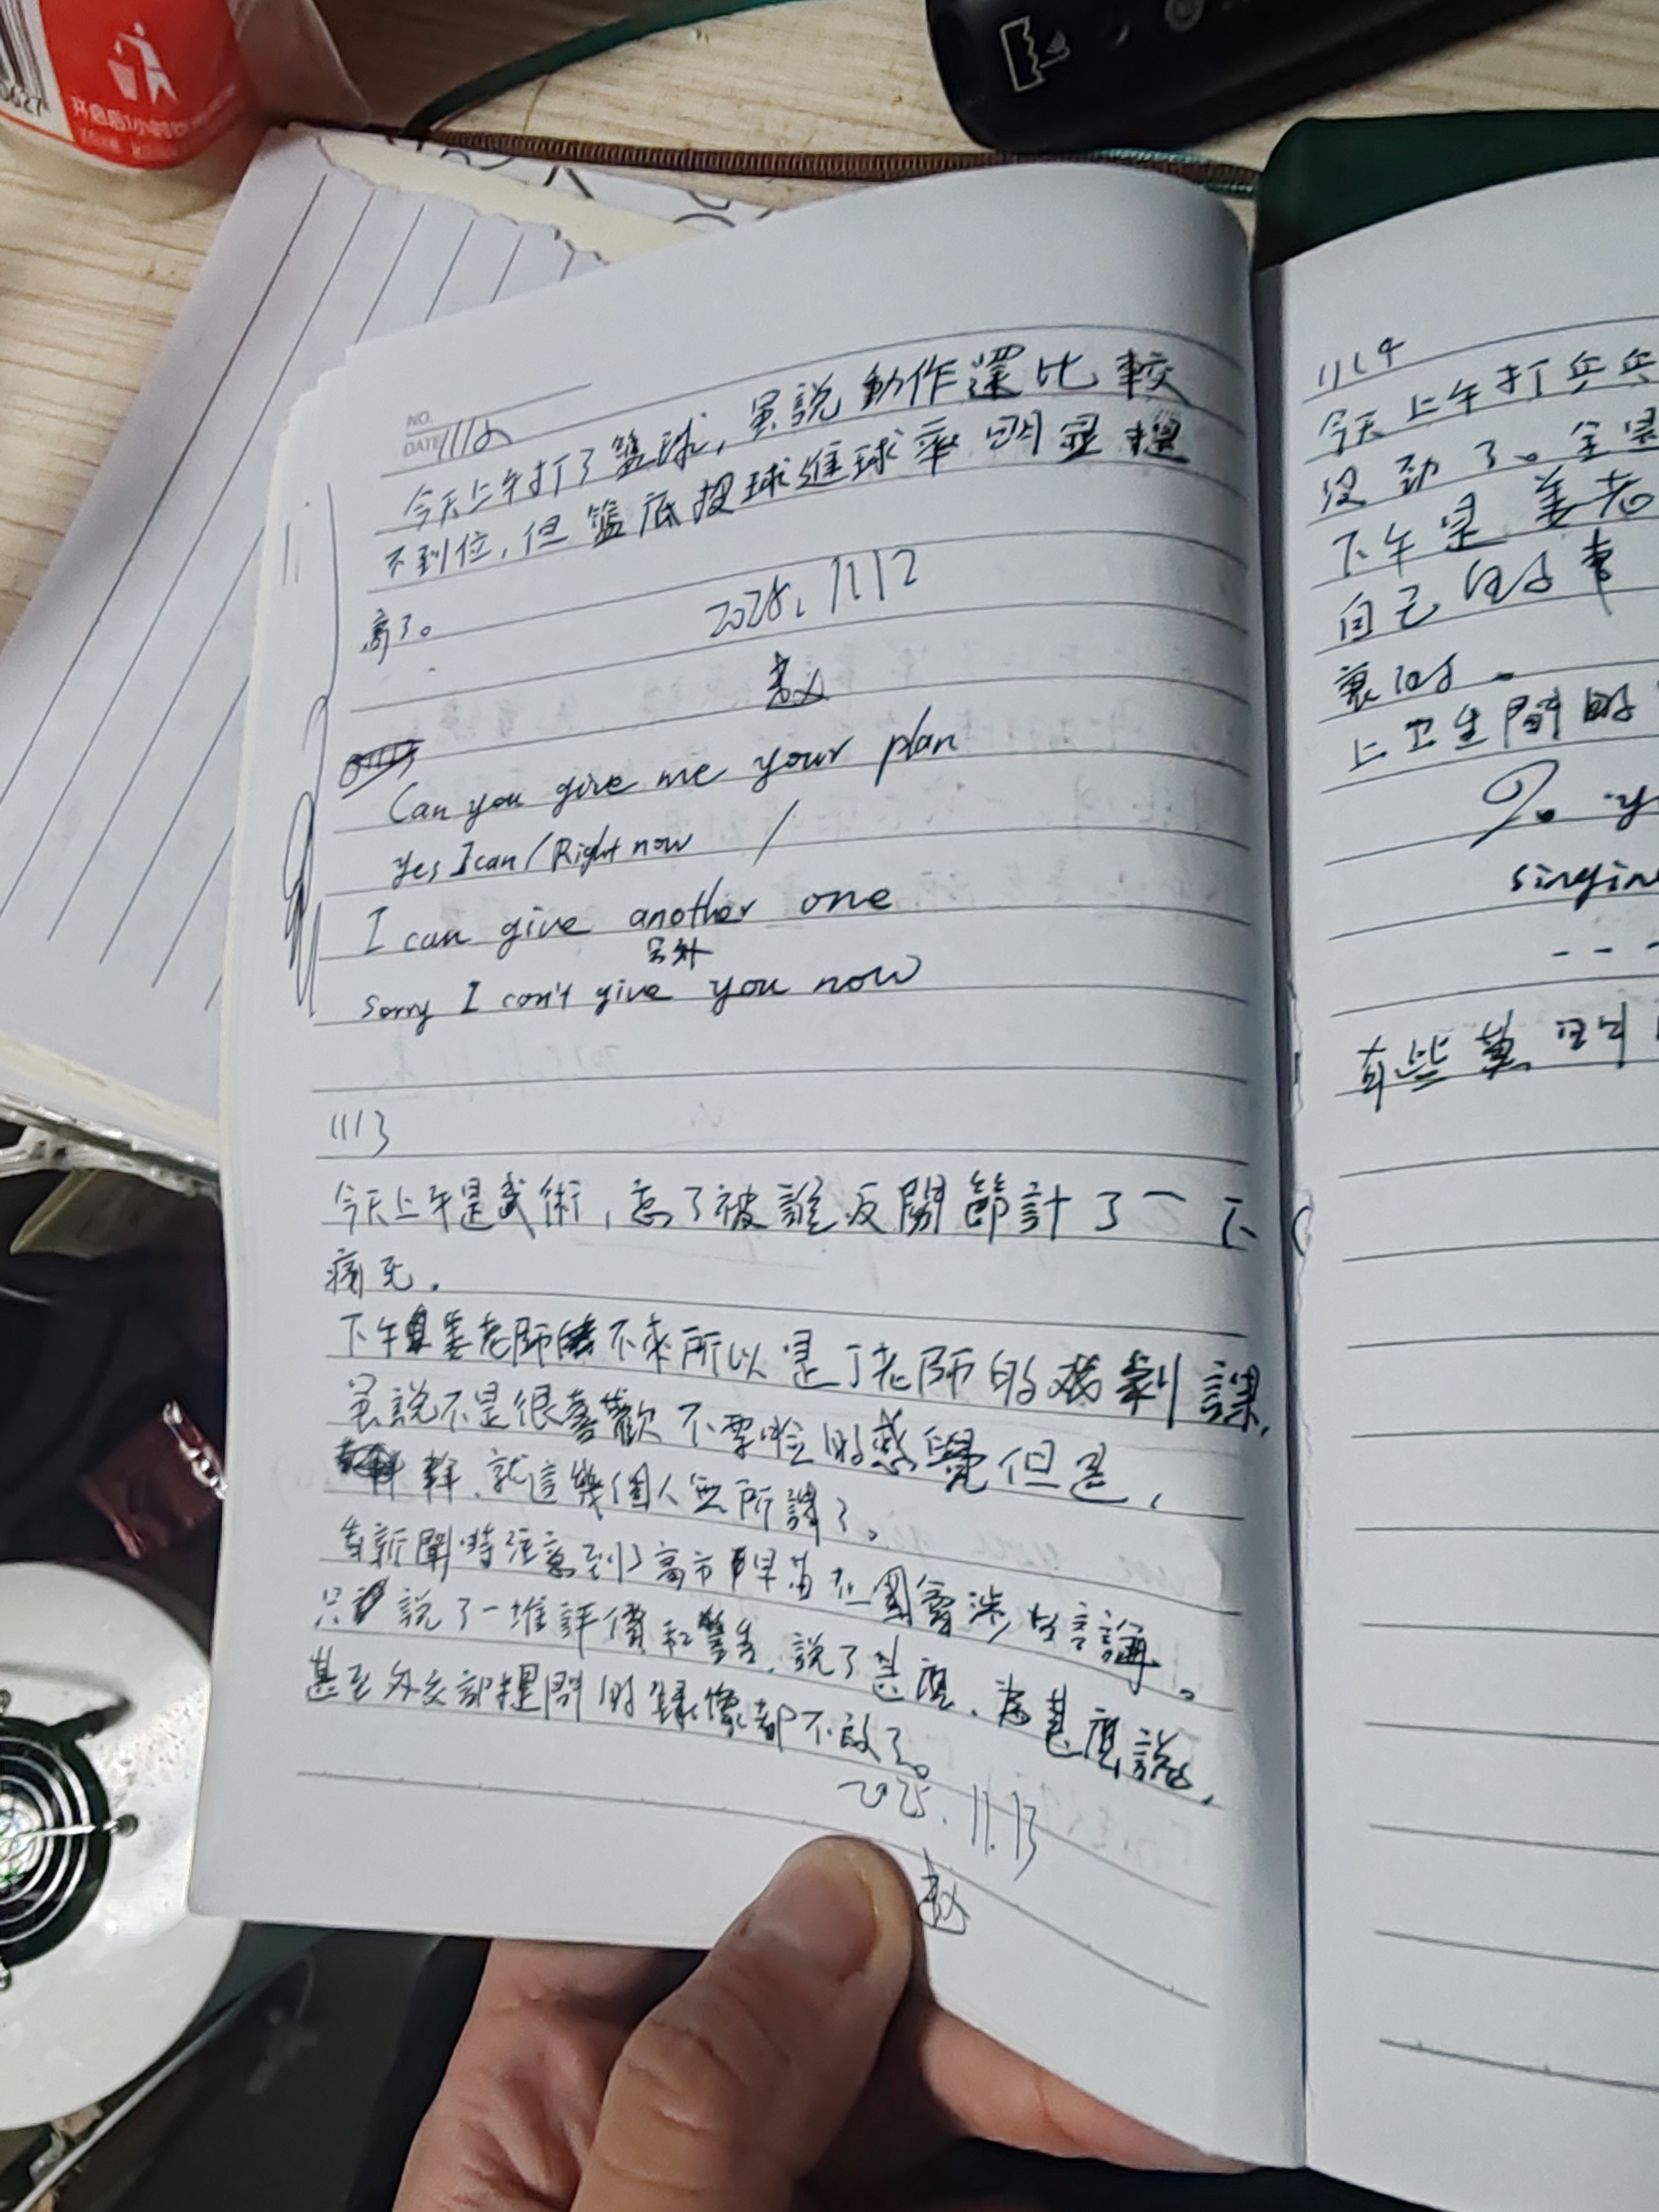 开启后1小时
NO.
DATE 1112
今天上午打了籃球，虽説動作還比較
不到位，但籃底投球進球率明显提
高了。
2025. 1112
赵
Can you give me your plan
yes I can / Right now /
I can give another one
另外
Sorry I can't give you now
1113
今天上午是武術，忘了被誰反関節計了一下
痛死.
下午姜老師不來所以是丁老師的戏剝課,
虽説不是很喜歡不要臉的感覺但是,
幹.就這幾個人無所謂了。
看新聞時注意到了高市早苗在國會涉台言講。
只説了一堆評價和警告.説了甚麼.為甚麼説,
甚至外交部提問的録像都不敢了。
2025.11.13
赵
1114
今天上午打乒乓
没劲了。全是
下午是姜老
自己
上卫生間的
singing
有些